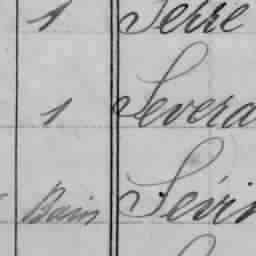 1 Serre
1 Severa
Bain Séri